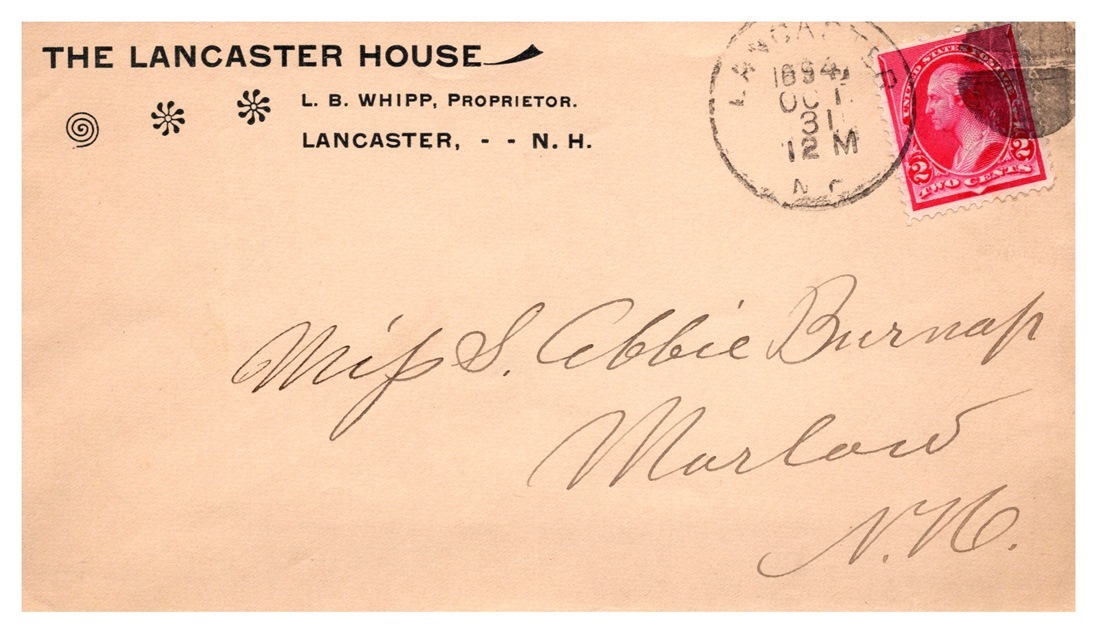 THE LANCASTER HOUSE
L. B. WHIPP, PROPRIETOR.
LANCASTER, - - N. H.
LANCASTER
1894
OCT
31
12 M
N.
UNITED STATES POSTAGE
2 2
TWO CENTS
Miss S. Abbie Burnap
Marlow
N.H.